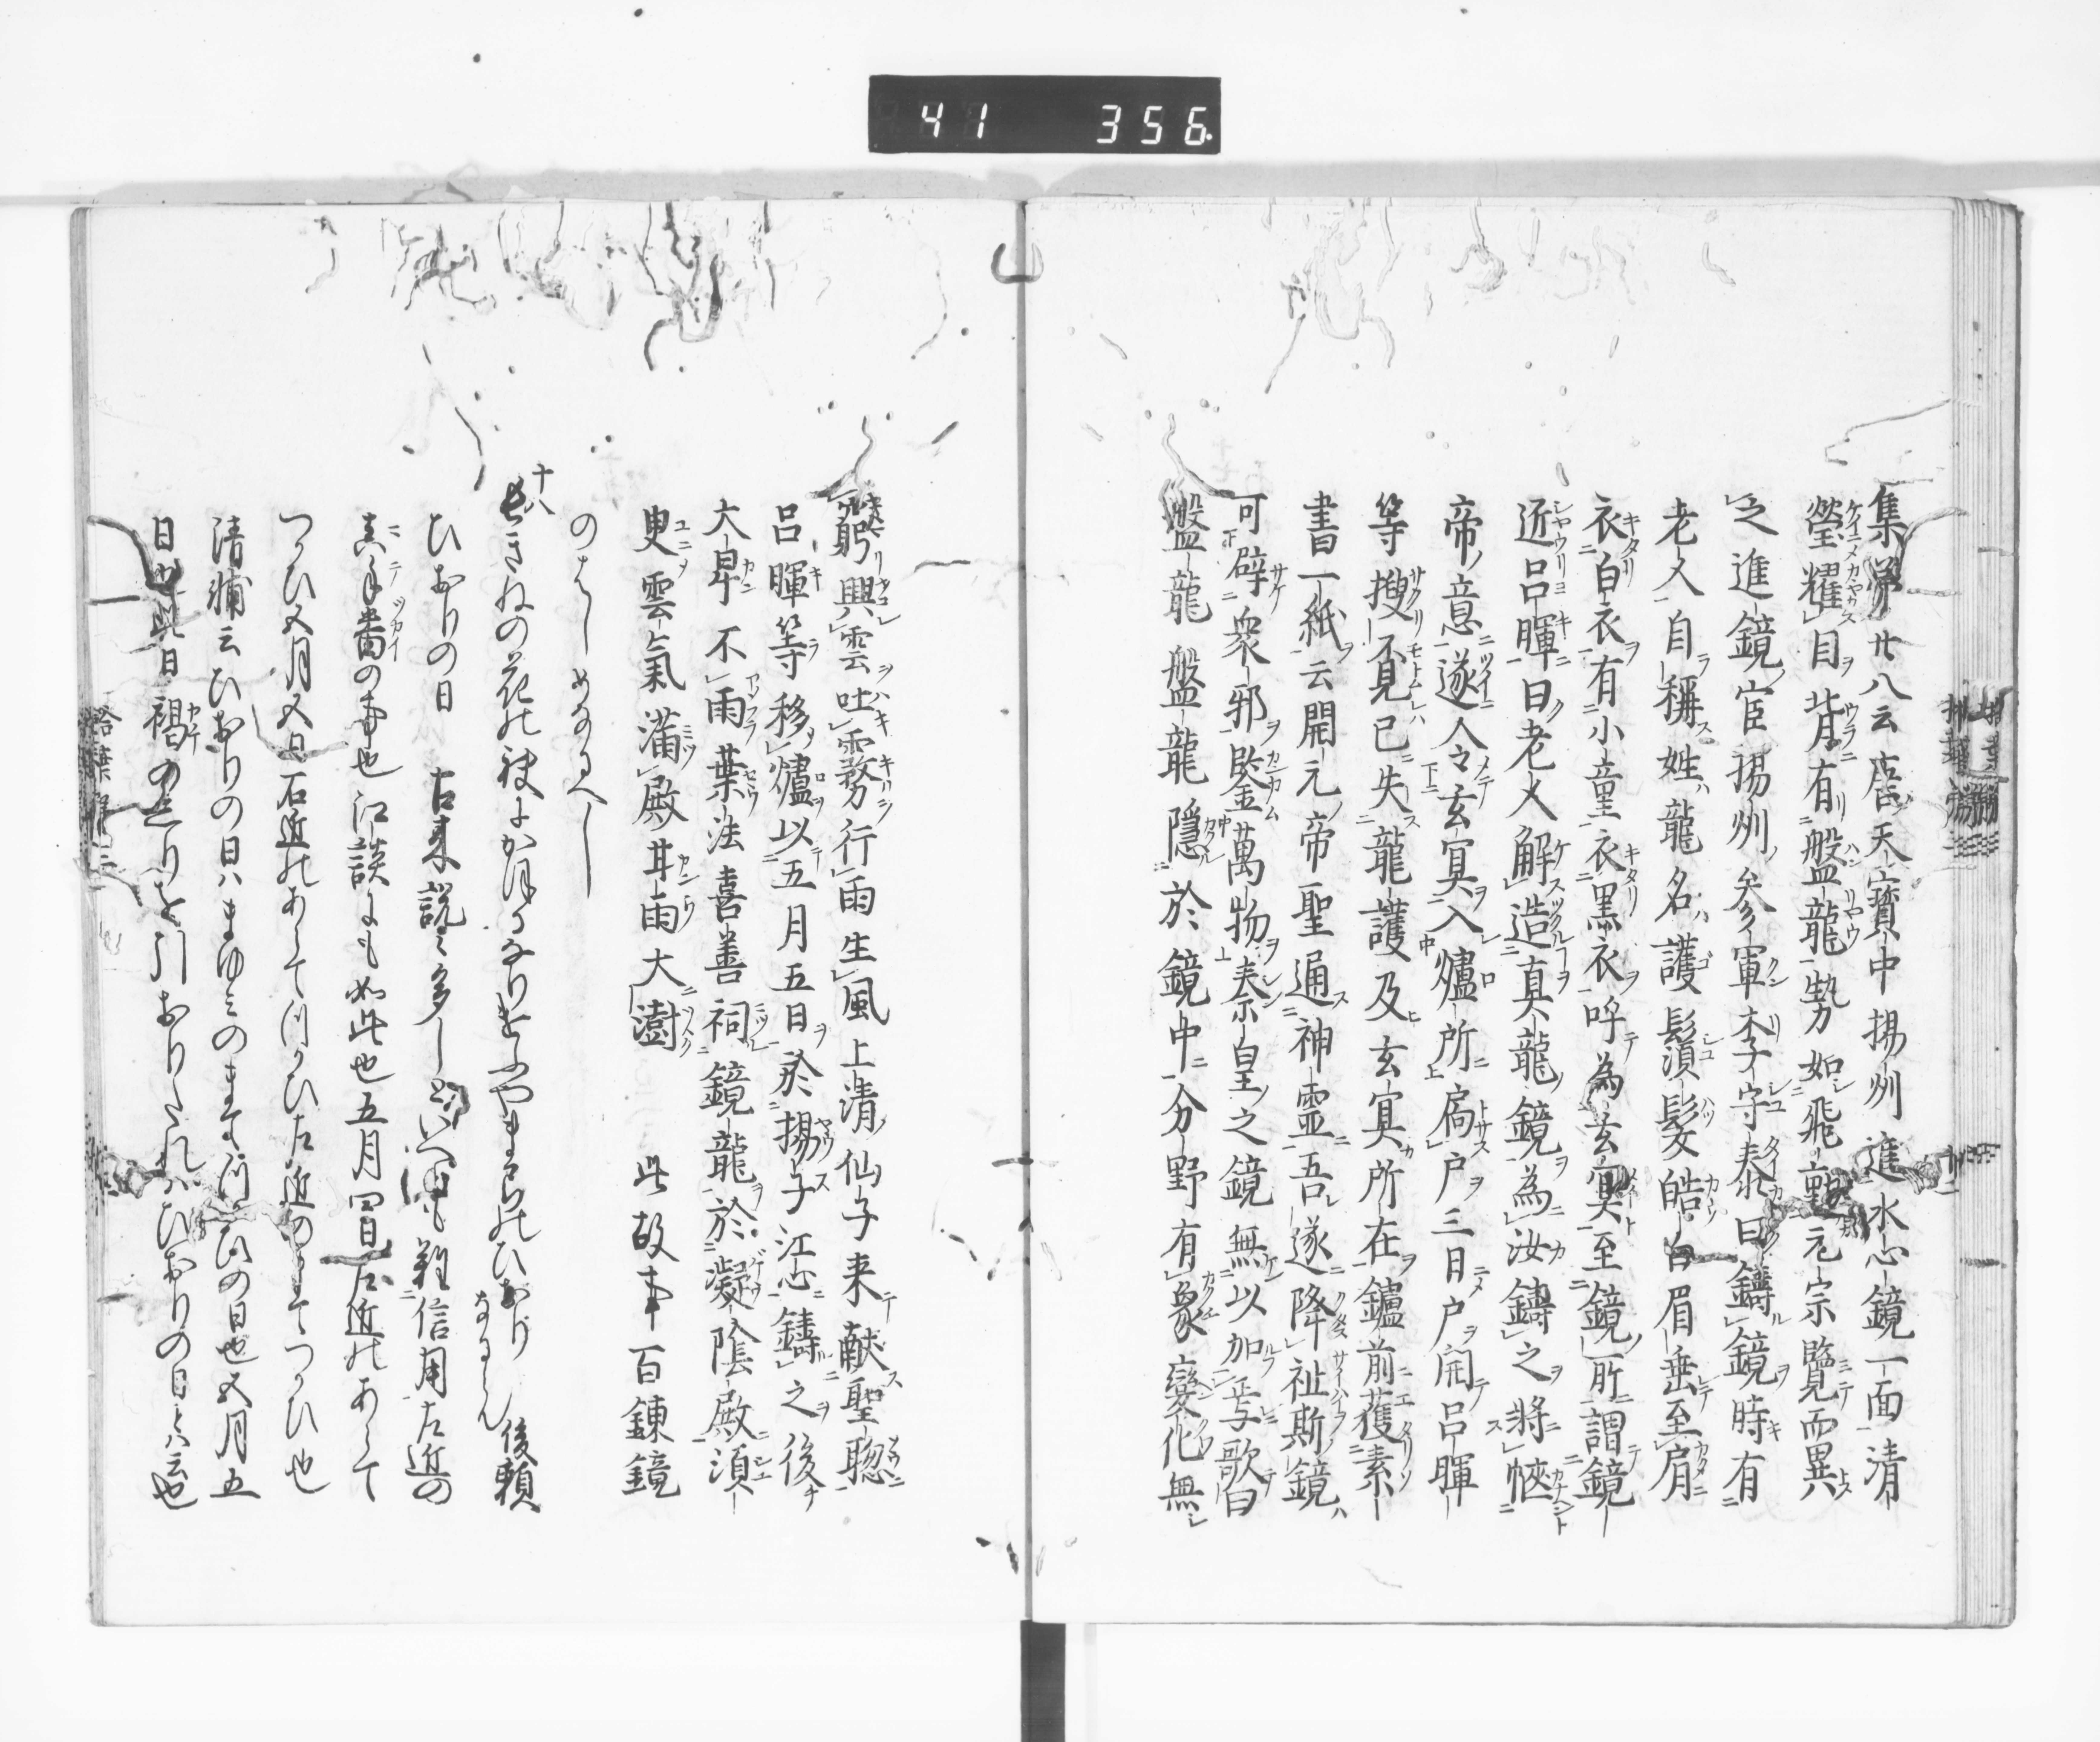 41 356.
集第廿八云唐天寶中揚州進水心鏡一面清
瑩耀目背有盤龍勢如飛動元宗覽而異
之進鏡官揚州参軍李守泰曰鑄鏡時有
老人自稱姓龍名護鬚髮皓白眉垂至肩
衣白衣有小童衣黒衣呼為玄冥至鏡所謂鏡
近呂暉曰老人解造真龍鏡為汝鑄之將愜
帝意遂令玄冥入爐所扄戸三日戸開呂暉
等搜覓已失龍護及玄冥所在鑪前獲素
書一紙云開元帝聖通神靈吾遂降祉斯鏡
可辟衆邪鑒萬物秦皇之鏡無以加焉歌曰
盤龍盤龍隱於鏡中分野有象變化無
窮興雲吐霧行雨生風上清仙子来献聖聦
呂暉等移爐以五月五日於揚子江心鑄之後
大旱不雨葉法善祠鏡龍於凝陰殿須
臾雲氣滿殿甘雨大澍 此故事百錬鏡
のはしめなるへし
十八
なかきねの花の袂にかほるなりけふやまゆみのひおり なるらん 後頼
ひおりの日 古来説々多しといへとも難信用左近の
真手番の事也江談にも如此也五月四日左近のあらて
つかひ五月五日右近のあらてつかひ左近のまてつかひ也
清輔云ひおりの日はまゆみのまてつかひの日也五月五
日也此日褐のしりを引おりたれはひおりの日とは云也
拾葉 三